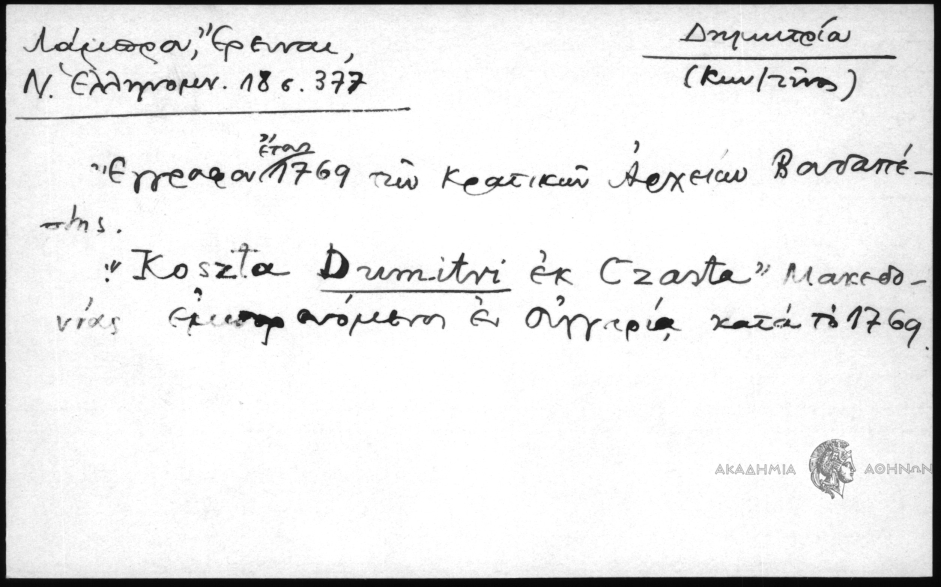 Λάμπρου, Ἔρευναι,
Ν. Ἑλληνομν. 18 σ. 377
Δημητρία
(Κων/τῖνος)
ἔτους
Ἔγγραφον 1769 τῶν Κρατικῶν Ἀρχείων Βουδαπέ-
στης.
"Koszta Dumitri ἐκ Czasta" Μακεδο-
νίας ἐμπορευόμενος ἐν Οὑγγαρίᾳ κατά τό 1769.
ΑΚΑΔΗΜΙΑ ΑΘΗΝΩΝ